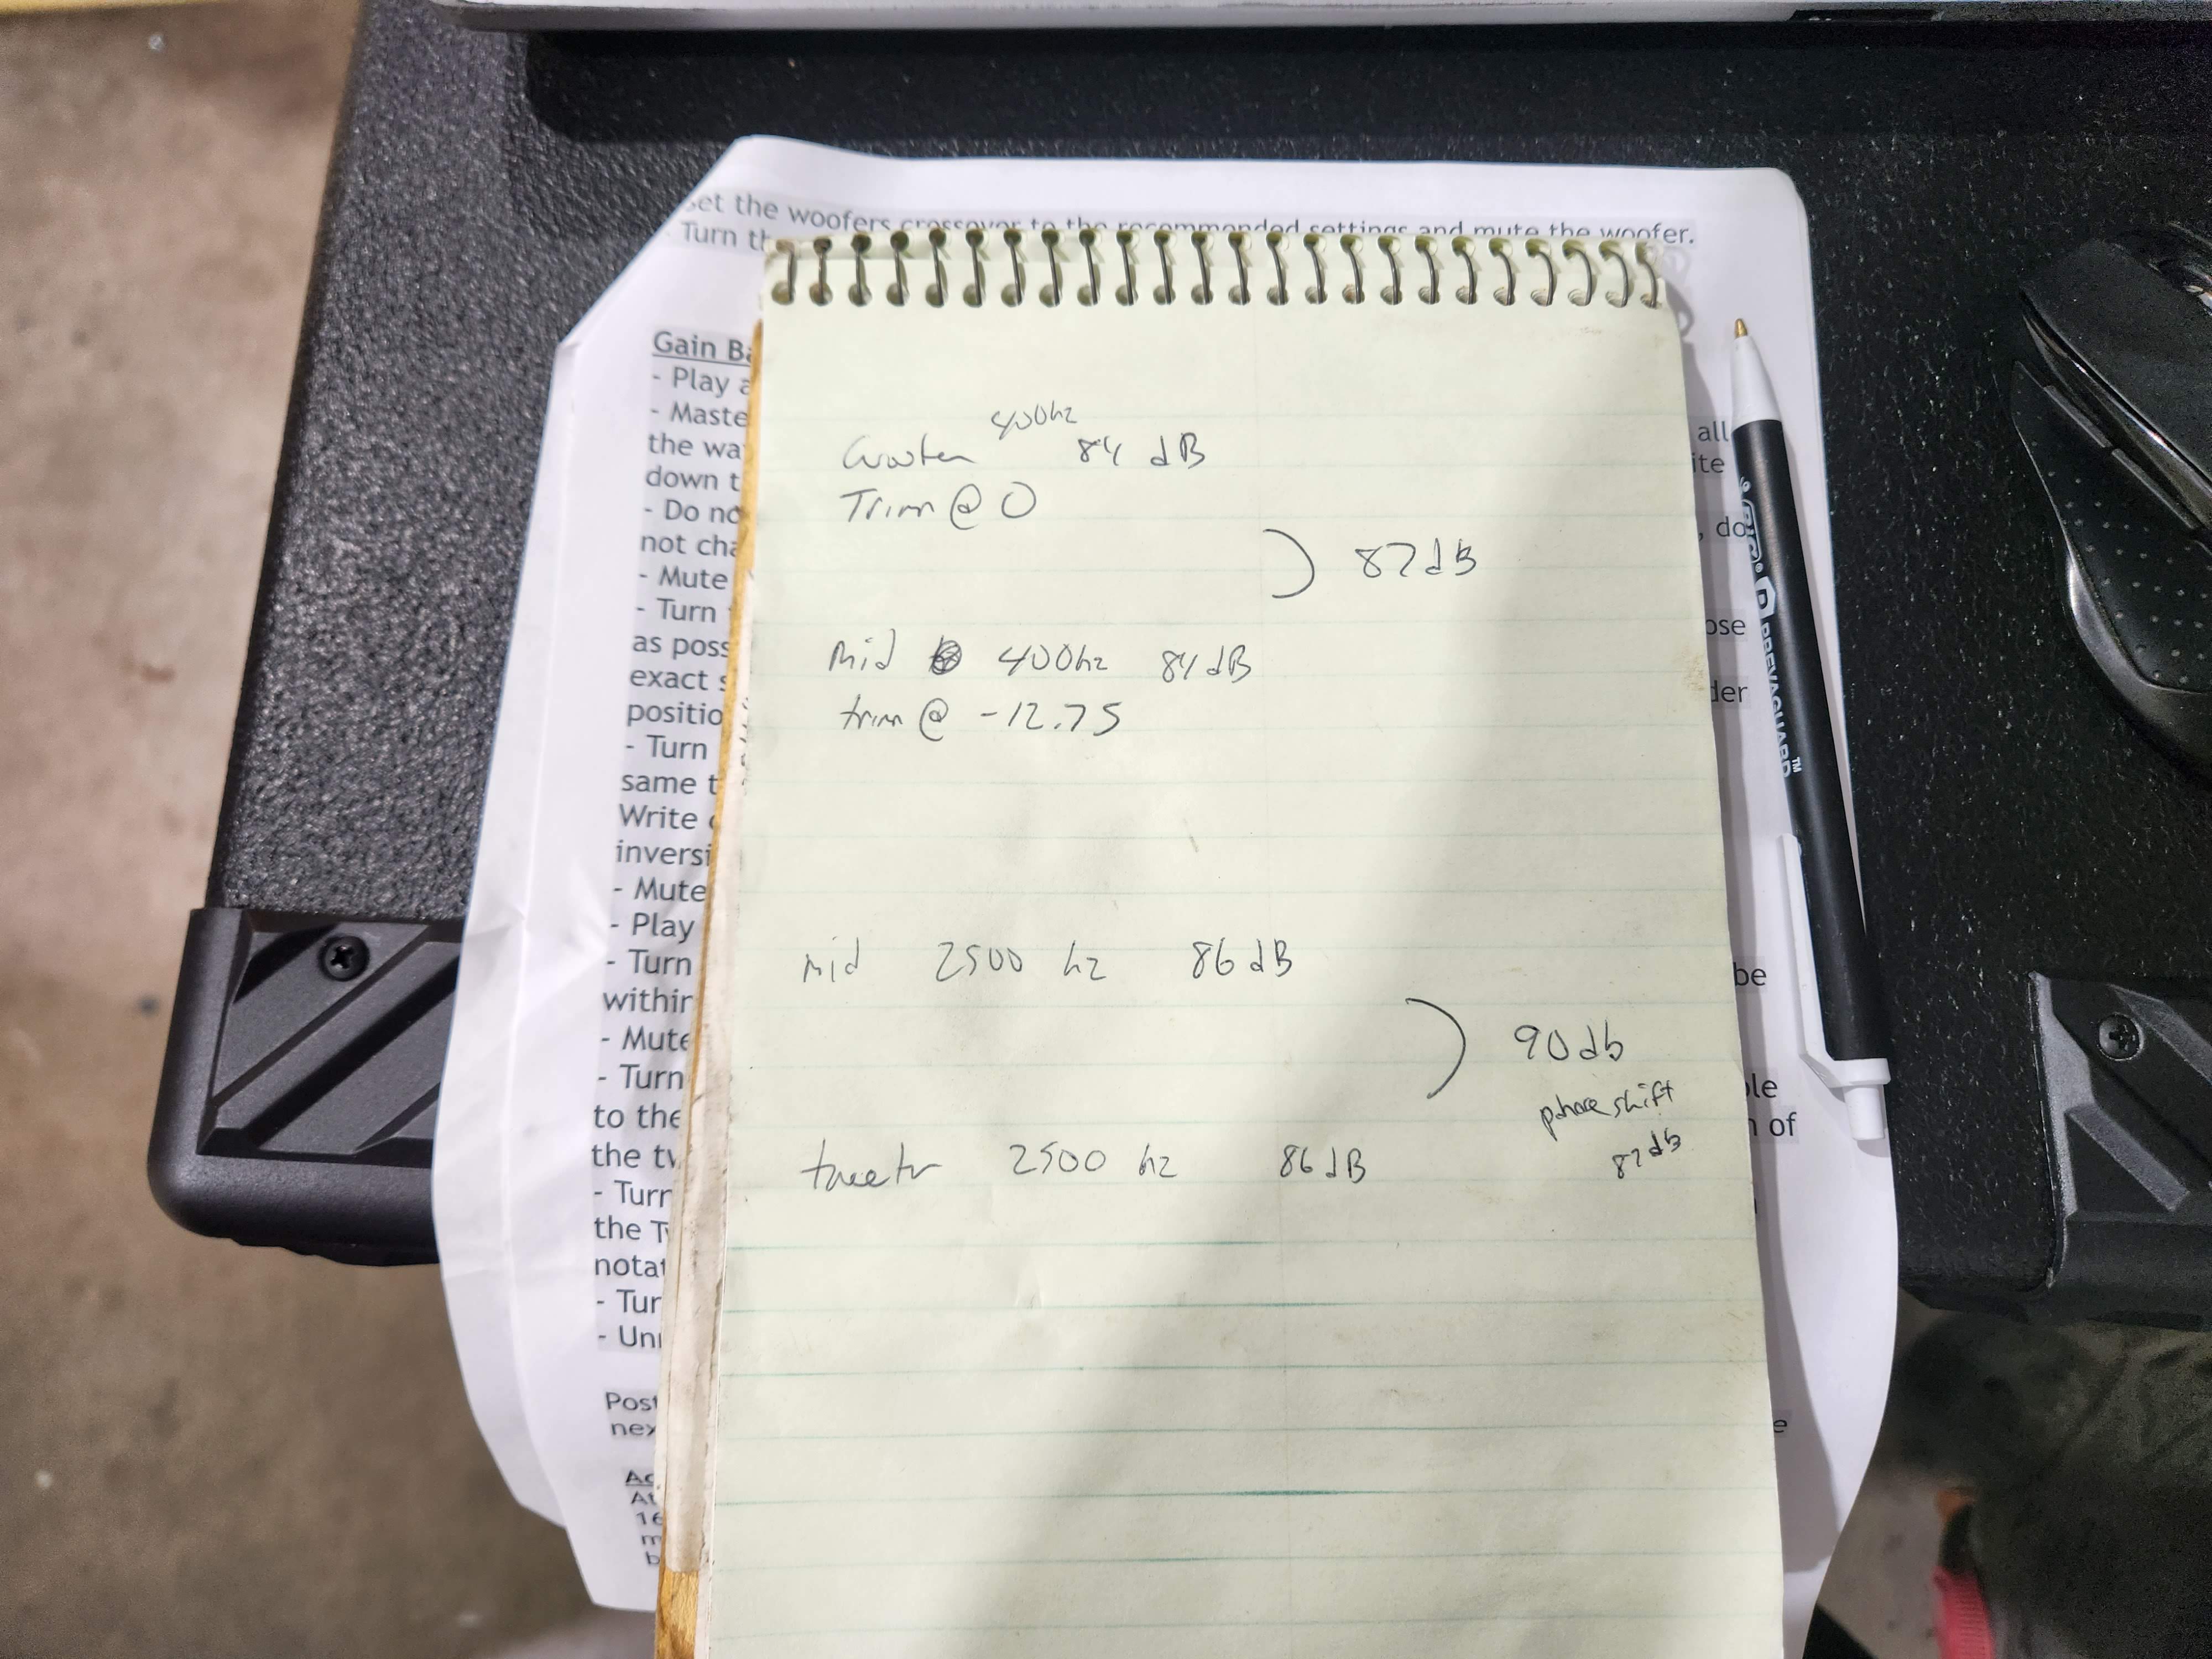 set the woofers crossover to the recommended settings and mute the woofer.
Turn th
Gain Ba
- Play a
- Maste
the wa
down t
- Do no
not cha
- Mute
- Turn
as poss
exact s
positio
- Turn
same t
Write
inversi
- Mute
- Play
- Turn
within
- Mute
- Turn
to the
the tw
- Turn
the T
notat
- Tur
- Un
Post
nex
Ac
At
16
m
b
all
ite
, do
ose
der
be
ole
n of
e
400hz
Woofer 84 dB
Trim @ 0
87dB
mid 400hz 84dB
trim @ -12.75
mid 2500 hz 86dB
90db
phase shift
87db
tweetr 2500 hz 86dB
PREVAGUARD™